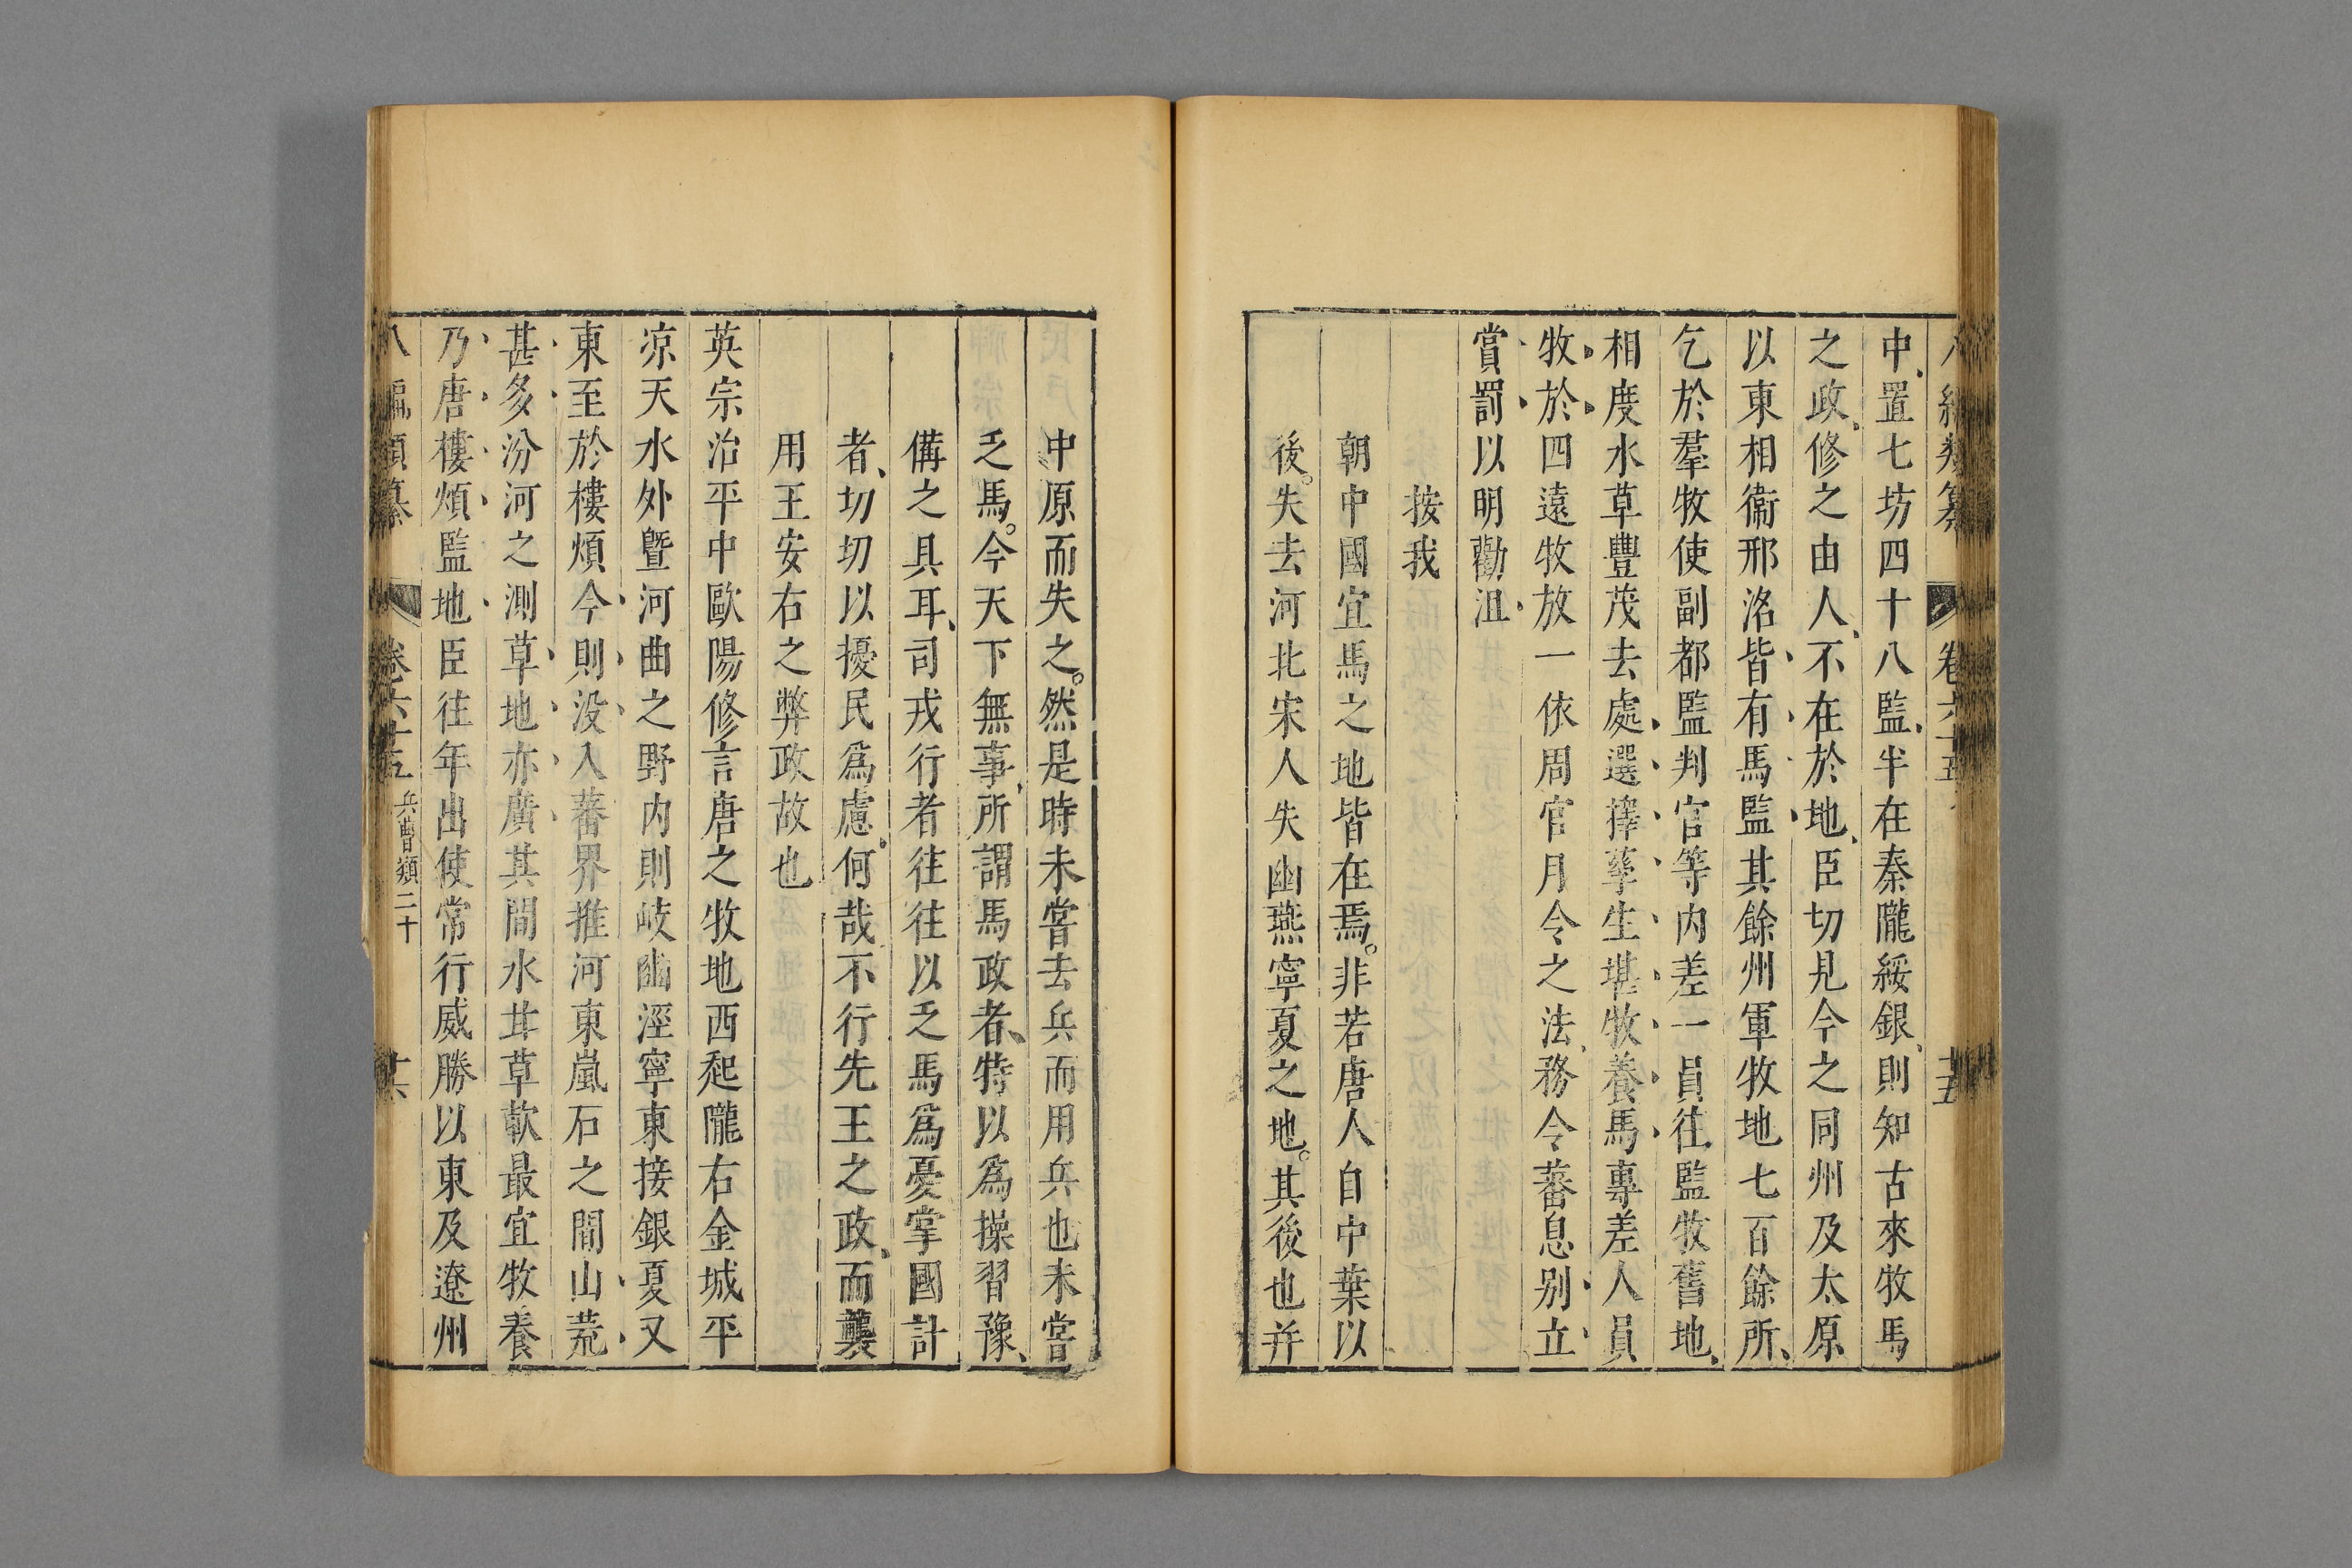 中置七坊四十八監半在秦隴綏銀則知古來牧馬
之政修之由人不在於地臣切見今之同州及太原
以東相衞邢洺皆有馬監其餘州軍牧地七百餘所
乞於羣牧使副都監判官等内差一員往監牧舊地
相度水草豐茂去處選擇孳生堪牧養馬專差人員
牧於四遠牧放一依周官月令之法務令蕃息别立
賞罰以明勸沮
按我
朝中國宜馬之地皆在焉。非若唐人自中葉以
後。失去河北宋人失幽燕寧夏之地。其後也并
中原而失之。然是時未嘗去兵而用兵也未嘗
乏馬。今天下無事所謂馬政者、特以爲操習豫、
備之具耳、司戎行者往往以乏馬爲憂掌國計
者、切切以擾民爲慮。何哉不行先王之政、而襲
用王安石之弊政故也
英宗治平中歐陽修言唐之牧地西起隴右金城平
凉天水外曁河曲之野内則岐豳涇寧東接銀夏又
東至於樓煩今則没入蕃界推河東嵐石之間山荒
甚多汾河之測草地亦廣其間水甘草軟最宜牧養
乃唐樓煩監地臣往年出使常行威勝以東及遼州
八編類纂 卷六十五 兵曹類二十